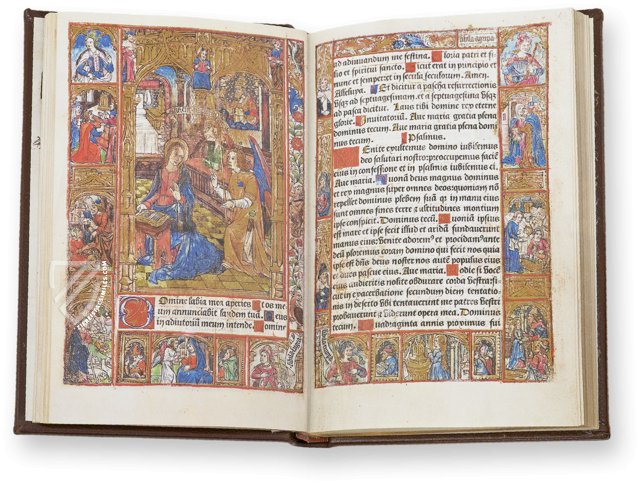 Domine labia mea aperies Et os me
um annunciabit laudem tuã. Deus
in adiutoriũ meum intende. Domine
ad adiuvandum me festina. Gloria patri et fi
lio et spiritui sancto. Sicut erat in principio et
nunc et semper et in secula seculorum. Amen.
Alleluya. Et dicitur a pascha resurrectionis
vsq; ad septuagesima, et a septuagesima vsq;
ad pascha dicitur. Laus tibi domine rex eterne
glorie. Invitatoriũ. Ave maria gratia plena
dominus tecum. Ave maria gratia plena do
minus tecum. Psalmus.
Venite exultemus domino iubilemus
deo salutari nostro: preoccupemus faciẽ
eius in confessione et in psalmis iubilemus ei.
Ave maria. Quoniã deus magnus dominus
et rex magnus super omnes deos: quoniam nõ
repellet dominus plebem suã quia in manu eius
sunt omnes fines terre et altitudines montium
ipse conspicit. Dominus tecũ. Quoniã ipsius
est mare et ipse fecit illud et aridã fundaverunt
manus eius: Venite adorem⁹ et procidam⁹ ante
deũ ploremus coram domino qui fecit nos quia
ipse est dominus deus noster nos autẽ populus eius et
oves pascue eius. Ave maria. Hodie si vocẽ
eius audieritis nolite obdurare corda vestra: si
cut in exacerbatione secundum diem tentatio
nis in deserto vbi tentaverunt me patres vestri
probaverunt et viderunt opera mea. Dominus
tecum. Quadraginta annis proximus fui